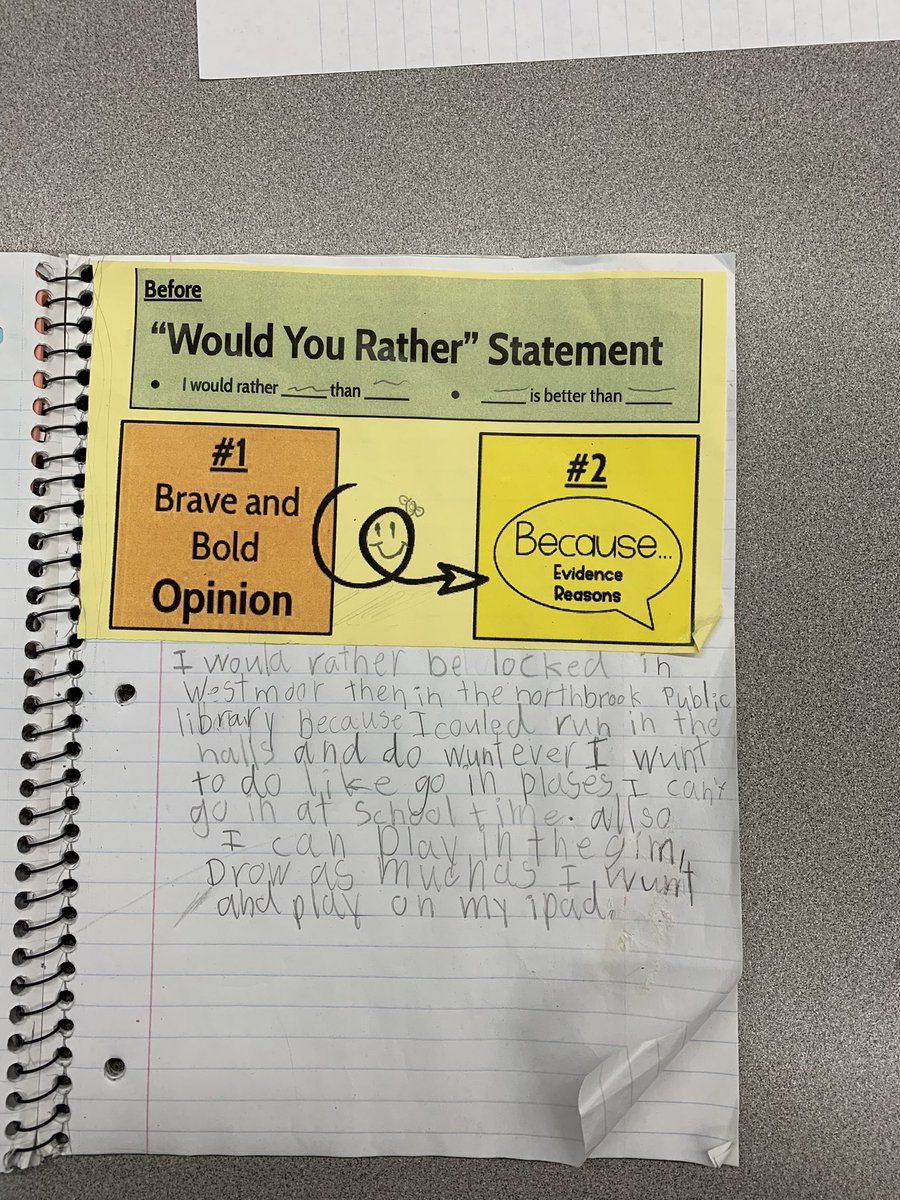 Before
“Would You Rather” Statement
• I would rather _____ than _____ • _____ is better than _____
#1
Brave and
Bold
Opinion
#2
Because...
Evidence
Reasons
I would rather be locked in
westmoor then in the northbrook Public
library Because I couled run in the
halls and do wuntever I wunt
to do like go in plases I can't
go in at School time. allso
I can Play in the gim,
Drow as much as I wunt
and play on my ipad.